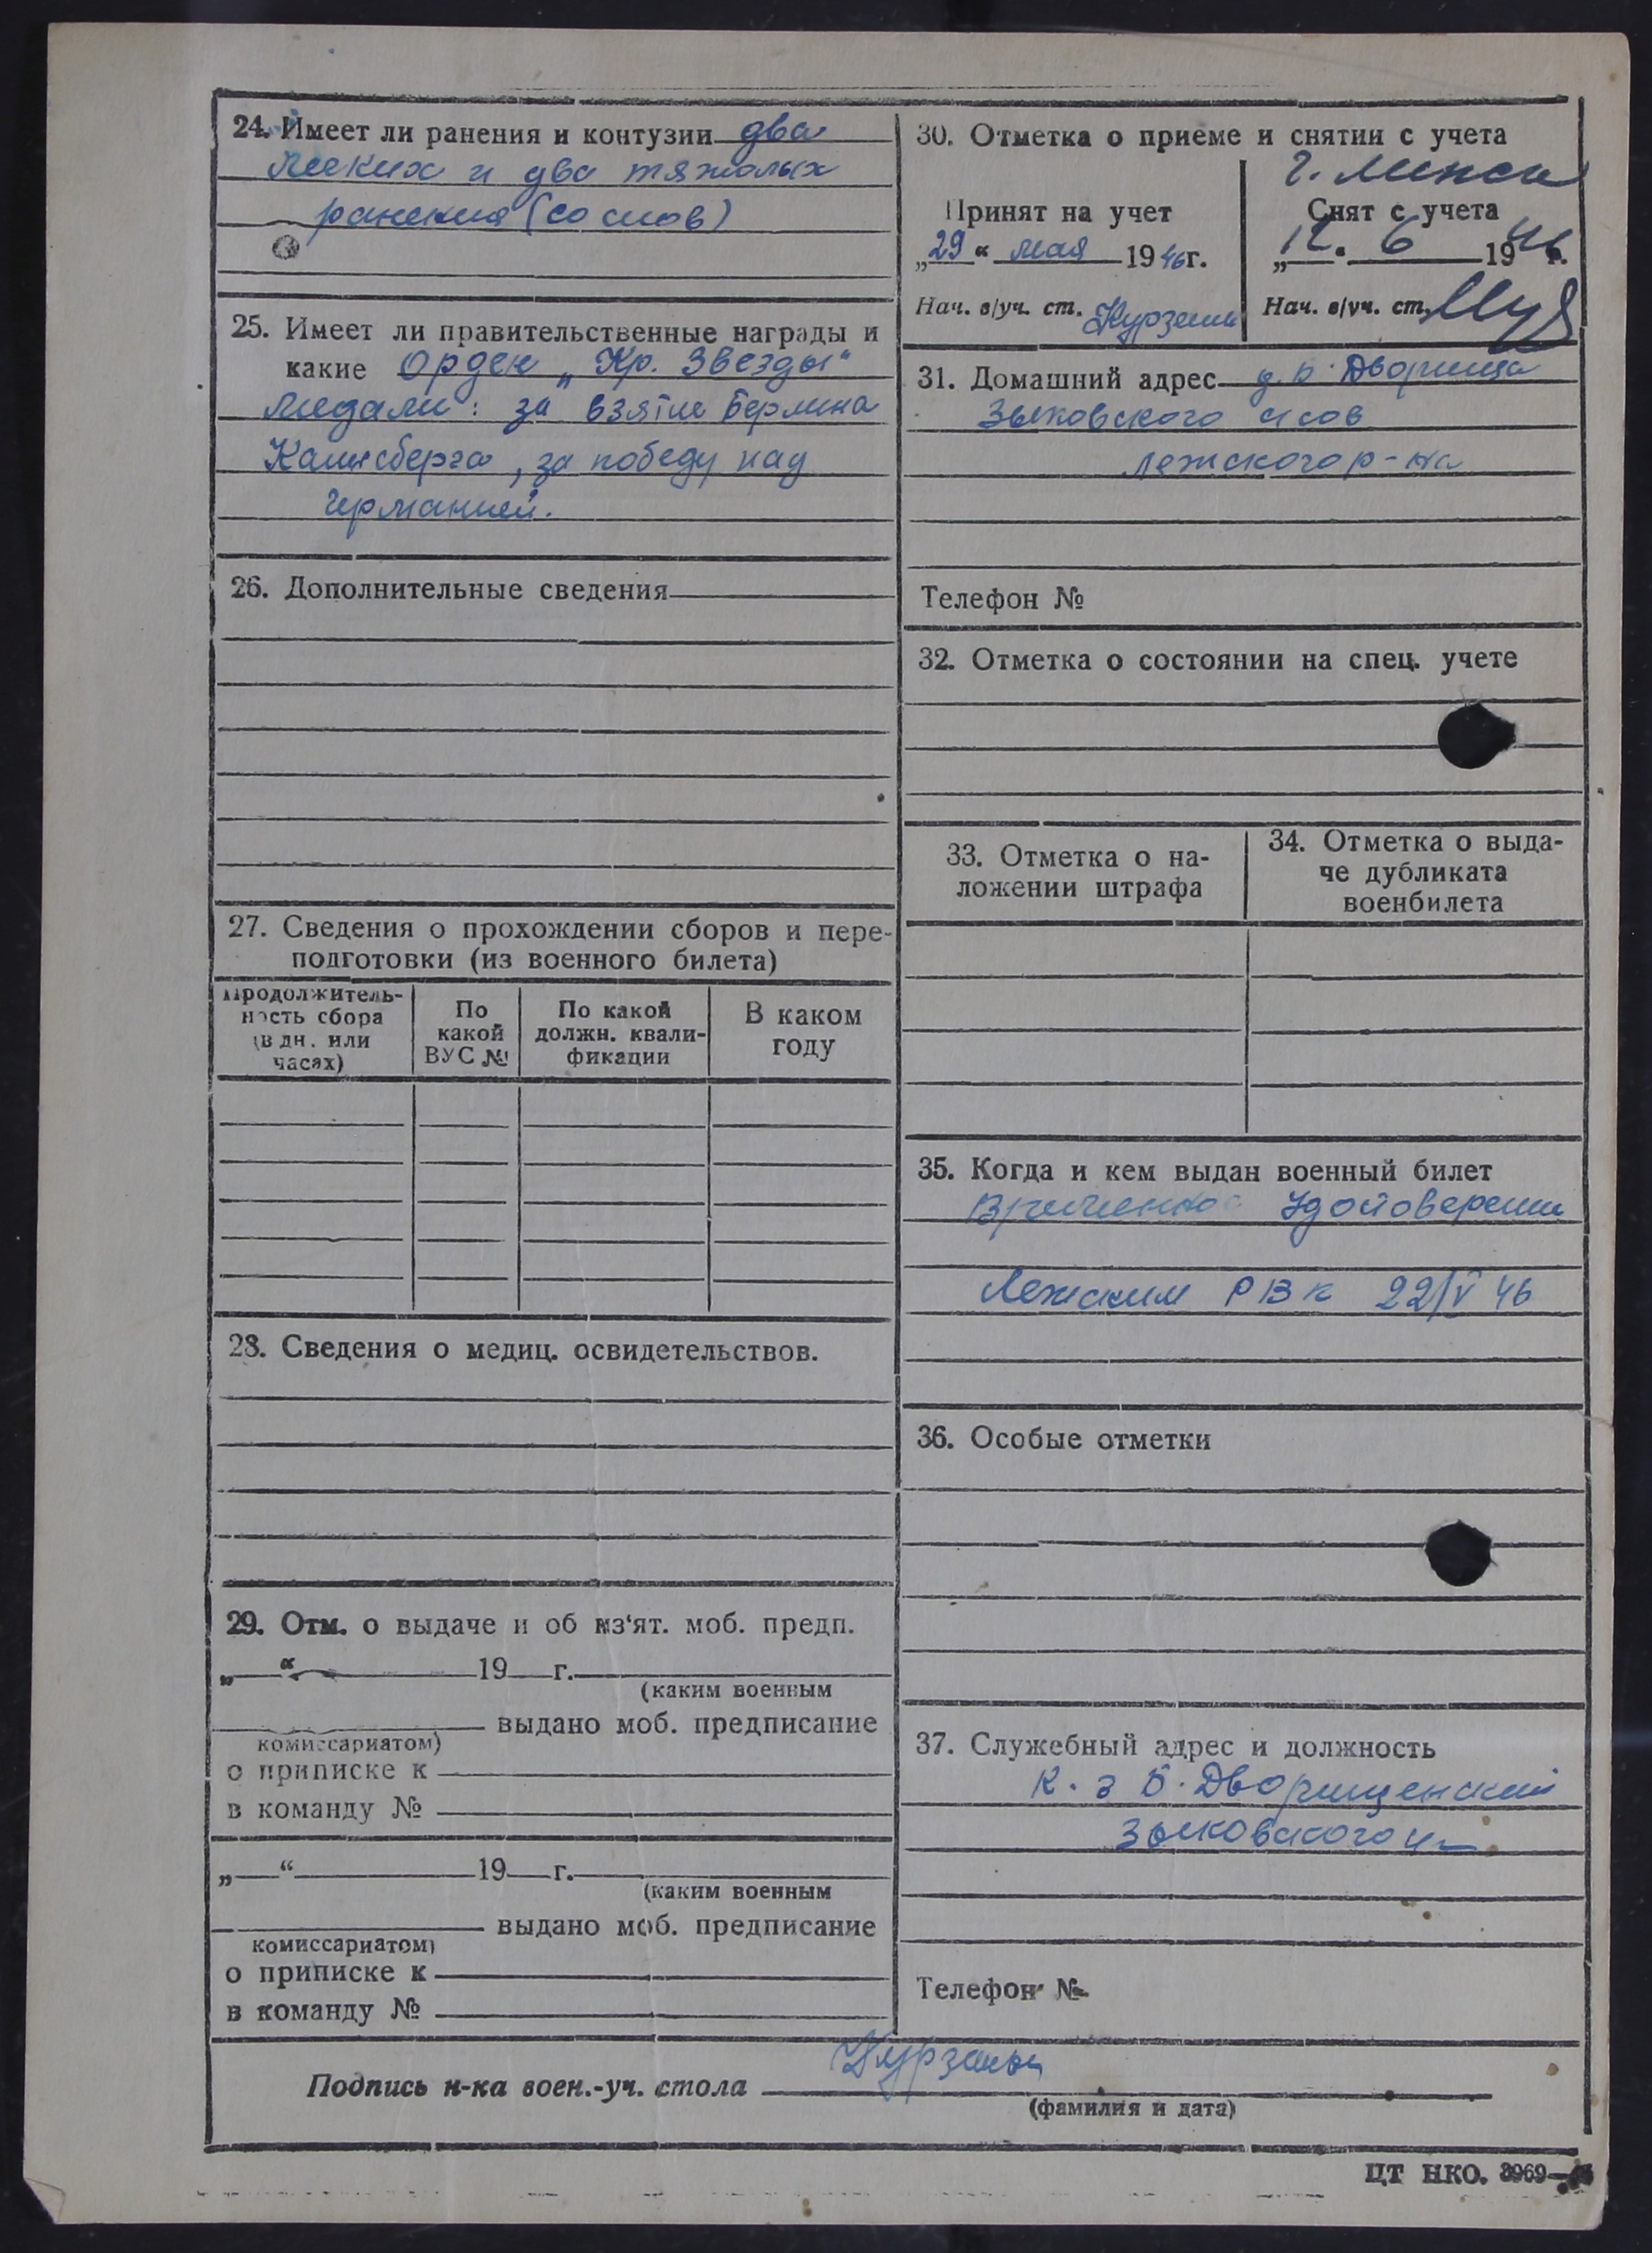 24. Имеет ли ранения и контузии два
легких и два тяжолых
ранения (со слов)
25. Имеет ли правительственные награды и
какие Орден „Кр. Звезды"
медали: за взятие Берлина
за победу над
Германией.
26. Дополнительные сведения
27. Сведения о прохождении сборов и пере-
подготовки (из военного билета)
Продолжитель-
ность сбора
(в дн. или
часах)
По
какой
ВУС №
По какой
должн. квали-
фикации
В каком
году
28. Сведения о медиц. освидетельствов.
29. Отм. о выдаче и об из'ят. моб. предп.
„ “ 19 г.
(каким военным
выдано моб. предписание
комиссариатом)
о приписке к
в команду №
„ “ 19 г.
(каким военным
выдано моб. предписание
комиссариатом)
о приписке к
в команду №
30. Отметка о приеме и снятии с учета
Принят на учет
„29“ мая 1946г.
Нач. в/уч. ст.
г. Минск
Снят с учета
6 1946г.
Нач. в/уч. ст.
31. Домашний адрес д. Б. Дворища
Зыковского с/сов
Лежского р-на
Телефон №
32. Отметка о состоянии на спец. учете
33. Отметка о на-
ложении штрафа
34. Отметка о выда-
че дубликата
военбилета
35. Когда и кем выдан военный билет
Временное Удостоверении
Лежским РВК 22/V 46
36. Особые отметки
37. Служебный адрес и должность
к-з Б. Дворищенский
Зыковского
Телефон №
Подпись н-ка воен.-уч. стола
(фамилия и дата)
ЦТ НКО. 3969